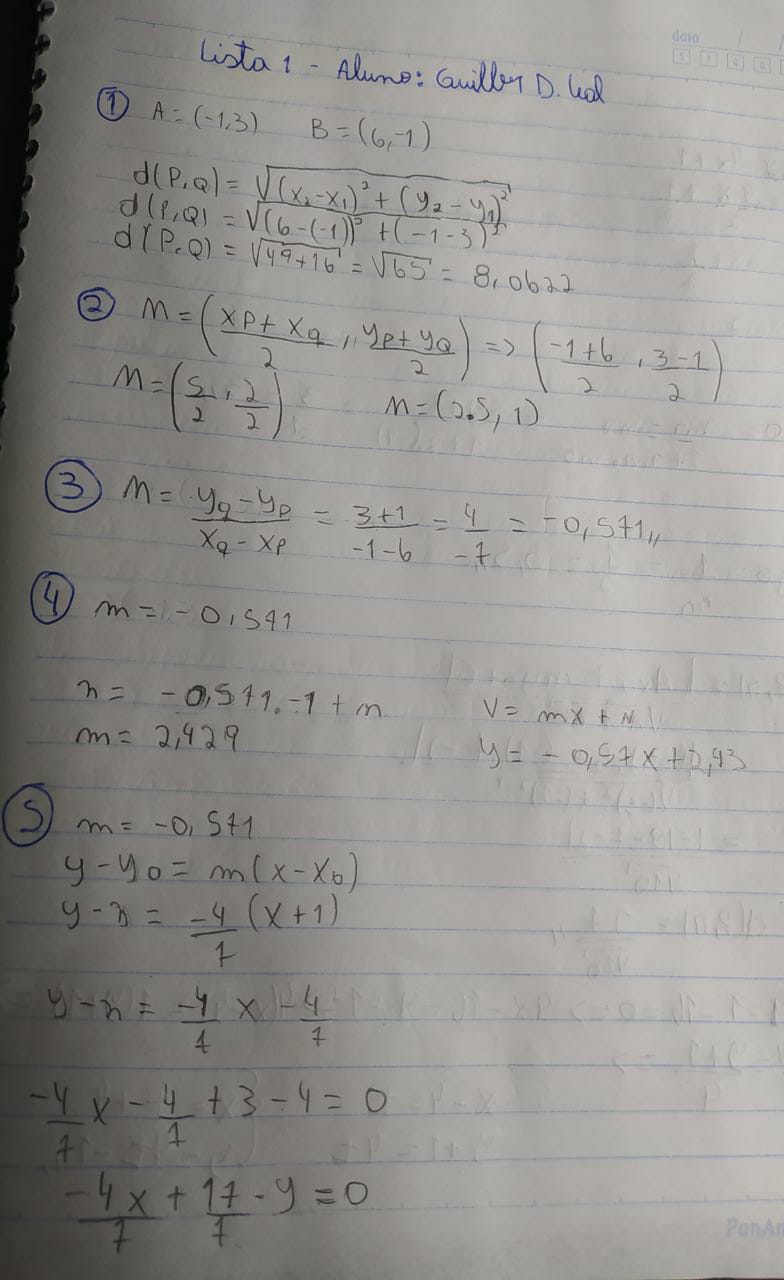 data / /
Lista 1 - Aluno: D.
① A = (-1,3) B = (6,-1)
d(P,Q) = √(x₂-x₁)² + (y₂-y₁)²
d(P,Q) = √(6-(-1))² + (-1-3)²
d(P,Q) = √49+16 = √65 = 8,0622
② M = (xP + xQ / 2 , yP + yQ / 2) => (-1+6 / 2 , 3-1 / 2)
M = (5/2 , 2/2) M = (2.5, 1)
③ M = yQ - yP / xQ - xP = 3+1 / -1-6 = 4 / -7 = -0,571,,
④ m = -0,571
3 = -0,571.-1 + n V = mx + N
m = 2,429 y = -0,57x + 2,43
⑤ m = -0,571
y - y0 = m(x - x0)
y - 3 = -4/7 (x+1)
y - 3 = -4/7 x - 4/7
-4/7 x - 4/7 + 3 - 4 = 0
-4x/7 + 17/7 - y = 0
PanAm